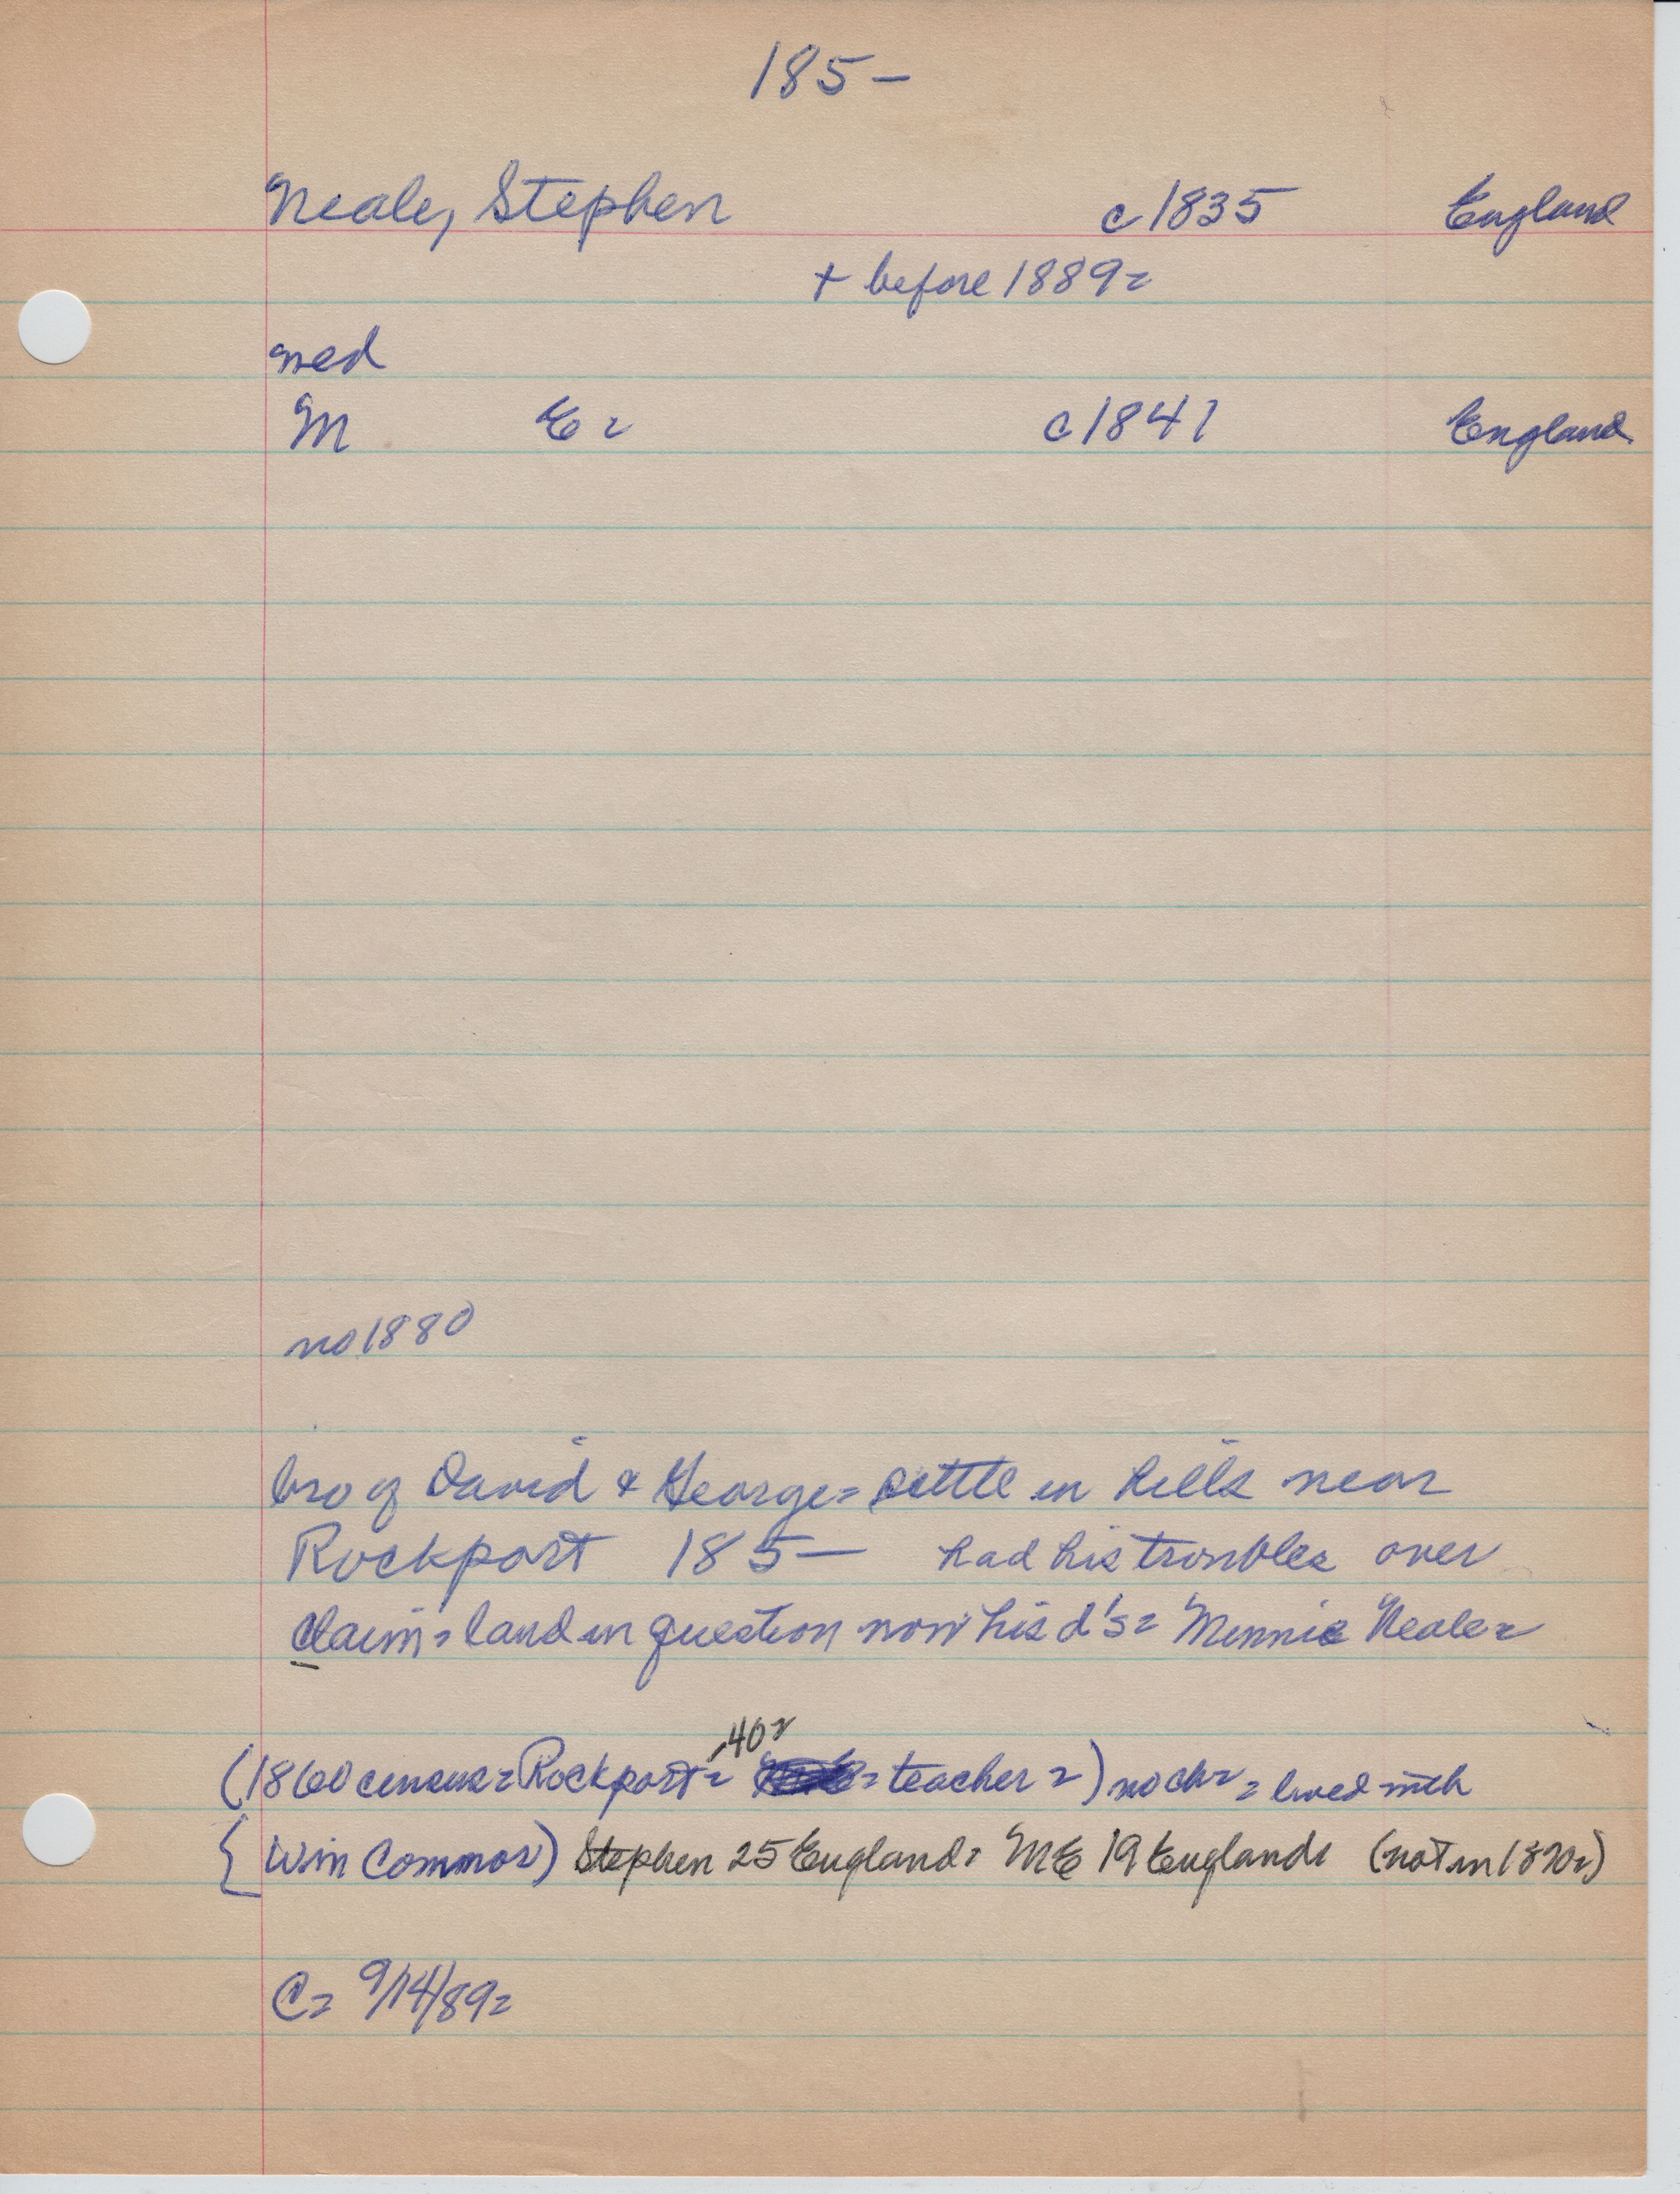 185-
Neale, Stephen c1835 England
+ before 1889=
med
M E= c1841 England
no 1880
bro of David & George= settle in hills near
Rockport 185- had his troubles over
claim= land in question now his d's= Minnie Neale=
-40=
(1860 census= Rockport= = teacher=) no ch= = lived with
{Wm Commor) Stephen 25 England= ME 19 England= (not in 1870=)
C= 9/14/89=